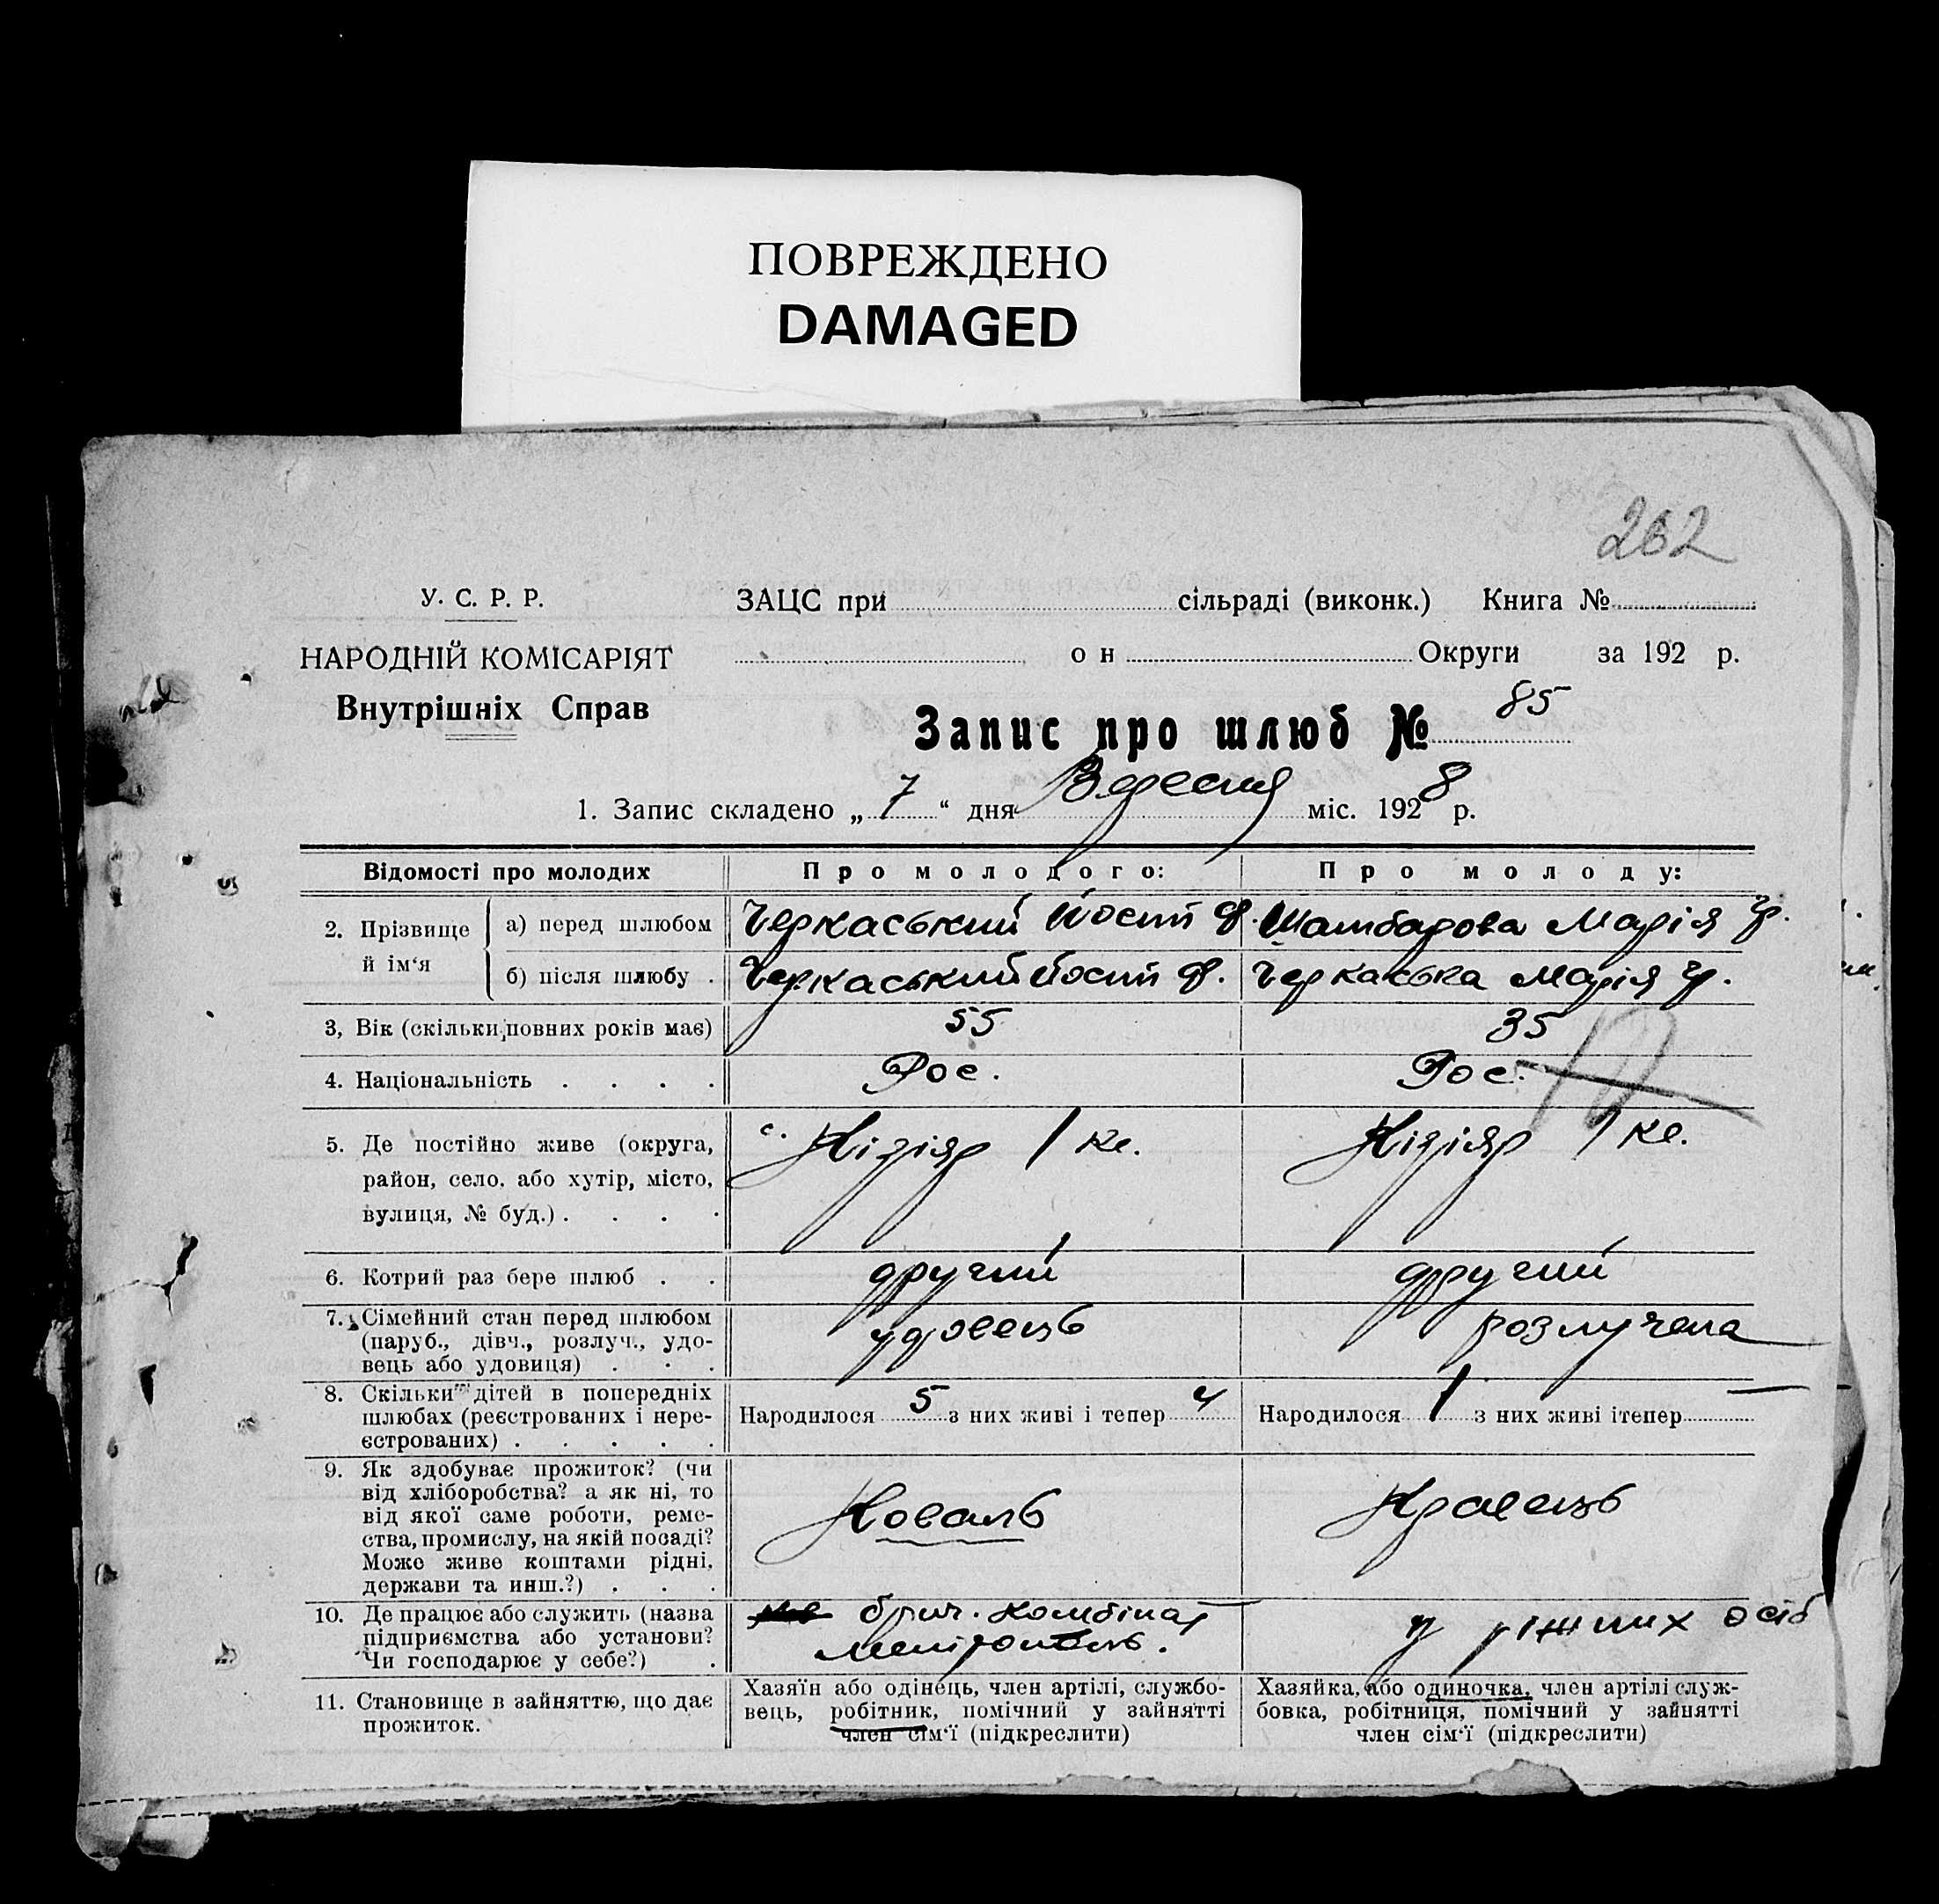 ПОВРЕЖДЕНО
DAMAGED
262
У. С. Р. Р.
НАРОДНІЙ КОМІСАРІЯТ
Внутрішніх Справ
ЗАЦС при сільраді (виконк.) Книга №
он Округи за 192 р.
Запис про шлюб № 85
1. Запис складено „ 7 “ дня Вересня міс. 1928 р.
Відомості про молодих Про молодого: Про молоду:
2. Прізвище й ім‘я
а) перед шлюбом Черкаський Йосип Ф. Шамбарова Марія Гр.
б) після шлюбу . Черкаський Йосип Ф. Черкаська Марія Гр.
3, Вік (скільки повних років має) 55 35
4. Національність . . . . Рос. Рос.
5. Де постійно живе (округа,
район, село. або хутір, місто,
вулиця, № буд.) . . . .
с. Кізіяр 1 кв. Кізіяр 1 кв.
6. Котрий раз бере шлюб . . другий другий
7. Сімейний стан перед шлюбом
(паруб., дівч., розлуч., удо-
вець або удовиця) . . .
удовець розлучена
8. Скільки дітей в попередніх
шлюбах (реєстрованих і нере-
єстрованих) . . . . .
Народилося 5 з них живі і тепер 4 Народилося 1 з них живі ітепер —
9. Як здобуває прожиток? (чи
від хліборобства? а як ні, то
від якої саме роботи, реме-
ства, промислу, на якій посаді?
Може живе коштами рідні,
держави та инш.?) . . .
Коваль Кравець
10. Де працює або служить (назва
підприємства або установи?
Чи господарює у себе?) .
комбінат
Мелітополь. у ріжних осіб
11. Становище в зайняттю, що дає
прожиток.
Хазяїн або одінець, член артілі, службо-
вець, робітник, помічний у зайнятті
член сім‘ї (підкреслити)
Хазяйка, або одиночка, член артілі служ-
бовка, робітниця, помічний у зайнятті
член сім‘ї (підкреслити)